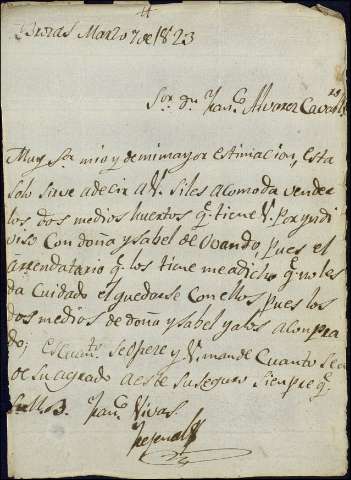 Brozas Marzo 7 de 1823
Sor. dn. Franco. Alvarez
Muy Sor mio y de mi mayor estimacion, esta
solo sirve a decir a V. si les acomoda vender
los dos medios huertos q. tiene V. por yndi
viso con doña ysabel de Ovando, pues el
arrendatario q. los tiene me a dicho q. no les
da cuidado el quedarse con ellos, pues los
dos medios de doña ysabel ya los a compra
do; es cuanto se ofrece y V. mande cuanto sea
de su agrado a este su seguro siempre q.
Franco. Vivas